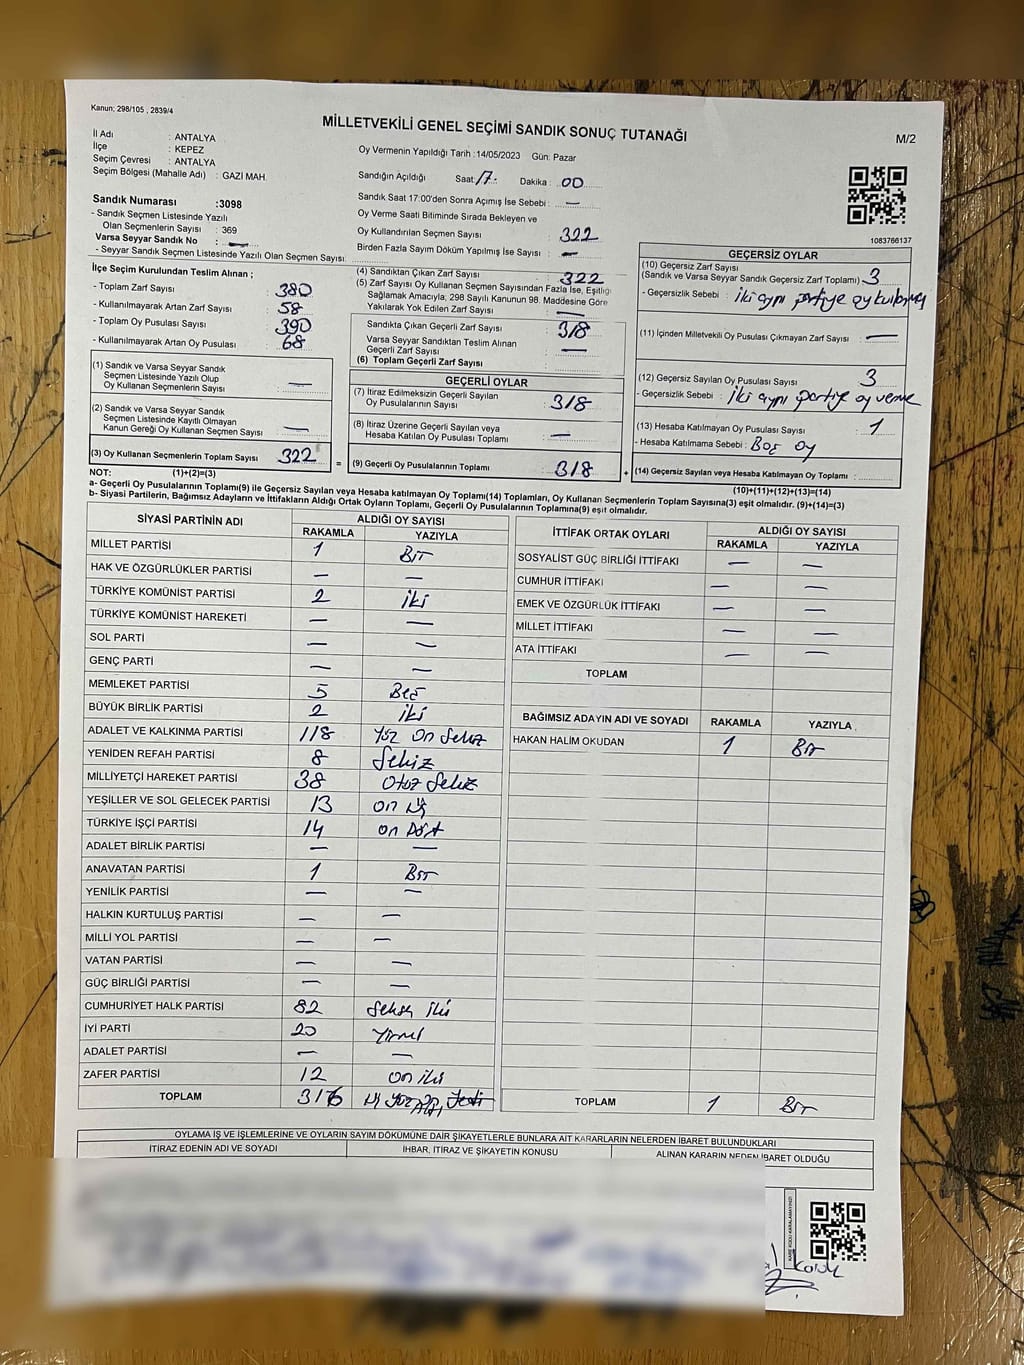 Kanun: 298/105 , 2839/4
MİLLETVEKİLİ GENEL SEÇİMİ SANDIK SONUÇ TUTANAĞI
M/2
İl Adı : ANTALYA
İlçe : KEPEZ
Seçim Çevresi : ANTALYA
Seçim Bölgesi (Mahalle Adı) : GAZI MAH.
Sandık Numarası :3098
- Sandık Seçmen Listesinde Yazılı
Olan Seçmenlerin Sayısı : 369
Varsa Seyyar Sandık No : —
- Seyyar Sandık Seçmen Listesinde Yazılı Olan Seçmen Sayısı:
Oy Vermenin Yapıldığı Tarih :14/05/2023 Gün: Pazar
Sandığın Açıldığı Saat: 17 Dakika : 00
Sandık Saat 17:00'den Sonra Açımış İse Sebebi : —
Oy Verme Saati Bitiminde Sırada Bekleyen ve
Oy Kullandırılan Seçmen Sayısı : 322
Birden Fazla Sayım Döküm Yapılmış İse Sayısı : —
1083766137
İlçe Seçim Kurulundan Teslim Alınan ;
- Toplam Zarf Sayısı : 380
- Kullanılmayarak Artan Zarf Sayısı : 58
- Toplam Oy Pusulası Sayısı : 390
- Kullanılmayarak Artan Oy Pusulası : 68
(1) Sandık ve Varsa Seyyar Sandık
Seçmen Listesinde Yazılı Olup
Oy Kullanan Seçmenlerin Sayısı : —
(2) Sandık ve Varsa Seyyar Sandık
Seçmen Listesinde Kayıtlı Olmayan
Kanun Gereği Oy Kullanan Seçmen Sayısı : —
(3) Oy Kullanan Seçmenlerin Toplam Sayısı : 322
(1)+(2)=(3)
(4) Sandıktan Çıkan Zarf Sayısı : 322
(5) Zarf Sayısı Oy Kullanan Seçmen Sayısından Fazla İse, Eşitliği
Sağlamak Amacıyla; 298 Sayılı Kanunun 98. Maddesine Göre
Yakılarak Yok Edilen Zarf Sayısı : —
Sandıkta Çıkan Geçerli Zarf Sayısı : 318
Varsa Seyyar Sandıktan Teslim Alınan
Geçerli Zarf Sayısı : —
(6) Toplam Geçerli Zarf Sayısı :
GEÇERLİ OYLAR
(7) İtiraz Edilmeksizin Geçerli Sayılan
Oy Pusulalarının Sayısı : 318
(8) İtiraz Üzerine Geçerli Sayılan veya
Hesaba Katılan Oy Pusulası Toplamı : —
= (9) Geçerli Oy Pusulalarının Toplamı : 318 +
GEÇERSİZ OYLAR
(10) Geçersiz Zarf Sayısı
(Sandık ve Varsa Seyyar Sandık Geçersiz Zarf Toplamı) : 3
- Geçersizlik Sebebi : iki aynı partiye oy
(11) İçinden Milletvekili Oy Pusulası Çıkmayan Zarf Sayısı : —
(12) Geçersiz Sayılan Oy Pusulası Sayısı : 3
- Geçersizlik Sebebi : iki aynı partiye oy verme
(13) Hesaba Katılmayan Oy Pusulası Sayısı : 1
- Hesaba Katılmama Sebebi : Boş oy
(14) Geçersiz Sayılan veya Hesaba Katılmayan Oy Toplamı :
(10)+(11)+(12)+(13)=(14)
NOT:
a- Geçerli Oy Pusulalarının Toplamı(9) ile Geçersiz Sayılan veya Hesaba katılmayan Oy Toplamı(14) Toplamları, Oy Kullanan Seçmenlerin Toplam Sayısına(3) eşit olmalıdır. (9)+(14)=(3)
b- Siyasi Partilerin, Bağımsız Adayların ve İttifakların Aldığı Ortak Oyların Toplamı, Geçerli Oy Pusulalarının Toplamına(9) eşit olmalıdır.
SİYASİ PARTİNİN ADI ALDIĞI OY SAYISI
RAKAMLA YAZIYLA
MİLLET PARTİSİ 1 Bir
HAK VE ÖZGÜRLÜKLER PARTİSİ — —
TÜRKİYE KOMÜNİST PARTİSİ 2 iki
TÜRKİYE KOMÜNİST HAREKETİ — —
SOL PARTİ — —
GENÇ PARTİ — —
MEMLEKET PARTİSİ 5 Beş
BÜYÜK BİRLİK PARTİSİ 2 iki
ADALET VE KALKINMA PARTİSİ 118 Yüz on Sekiz
YENİDEN REFAH PARTİSİ 8 Sekiz
MİLLİYETÇİ HAREKET PARTİSİ 38 Otuz Sekiz
YEŞİLLER VE SOL GELECEK PARTİSİ 13 on üç
TÜRKİYE İŞÇİ PARTİSİ 14 on Dört
ADALET BİRLİK PARTİSİ — —
ANAVATAN PARTİSİ 1 Bir
YENİLİK PARTİSİ — —
HALKIN KURTULUŞ PARTİSİ — —
MİLLİ YOL PARTİSİ — —
VATAN PARTİSİ — —
GÜÇ BİRLİĞİ PARTİSİ — —
CUMHURİYET HALK PARTİSİ 82 Seksen iki
İYİ PARTİ 20 Yirmi
ADALET PARTİSİ — —
ZAFER PARTİSİ 12 on iki
TOPLAM 316 üç yüz on Altı
İTTİFAK ORTAK OYLARI ALDIĞI OY SAYISI
RAKAMLA YAZIYLA
SOSYALİST GÜÇ BİRLİĞİ İTTİFAKI — —
CUMHUR İTTİFAKI — —
EMEK VE ÖZGÜRLÜK İTTİFAKI — —
MİLLET İTTİFAKI — —
ATA İTTİFAKI — —
TOPLAM
BAĞIMSIZ ADAYIN ADI VE SOYADI RAKAMLA YAZIYLA
HAKAN HALİM OKUDAN 1 Bir
TOPLAM 1 Bir
OYLAMA İŞ VE İŞLEMLERİNE VE OYLARIN SAYIM DÖKÜMÜNE DAİR ŞİKAYETLERLE BUNLARA AİT KARARLARIN NELERDEN İBARET BULUNDUKLARI
İTİRAZ EDENİN ADI VE SOYADI İHBAR, İTİRAZ VE ŞİKAYETİN KONUSU ALINAN KARARIN NEDEN İBARET OLDUĞU
KARE KODU KARALAMAYINIZ!